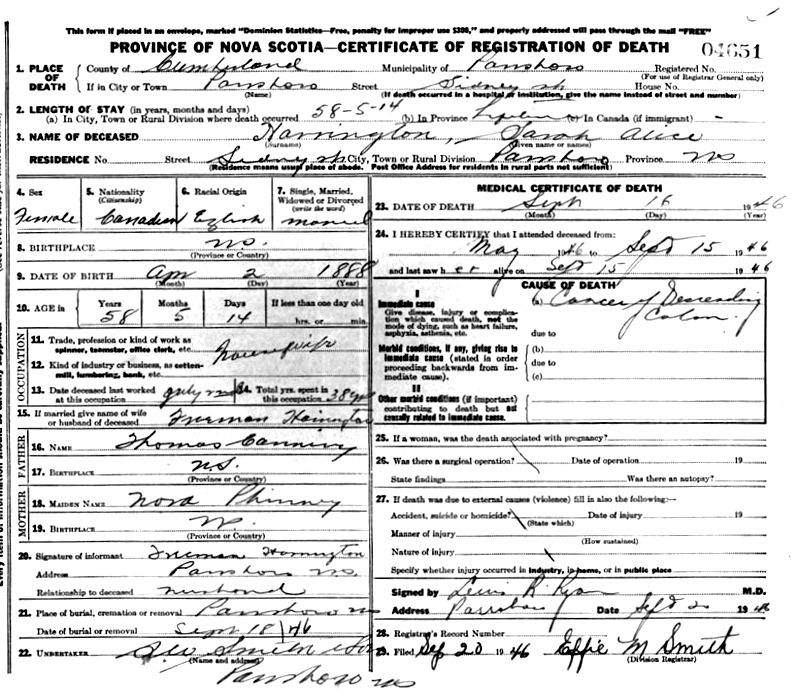 This form if placed in an envelope, marked "Dominion Statistics—Free, penalty for improper use $300," and properly addressed will pass through the mail "FREE"
PROVINCE OF NOVA SCOTIA—CERTIFICATE OF REGISTRATION OF DEATH 04651
1. PLACE OF DEATH County of Cumberland Municipality of Parrsboro Registered No.
(For use of Registrar General only)
If in City or Town Parrsboro Street Sidney St House No.
(Name) (If death occurred in a hospital or institution, give the name instead of street and number)
2. LENGTH OF STAY (in years, months and days)
(a) In City, Town or Rural Division where death occurred 58-5-14 (b) In Province (c) In Canada (if immigrant) -
3. NAME OF DECEASED Harrington, Sarah Alice
(Surname) (Given name or names)
RESIDENCE No. Street Sidney St City, Town or Rural Division Parrsboro Province NS
(Residence means usual place of abode. Post Office Address for residents in rural parts not sufficient)
4. Sex Female
5. Nationality (Citizenship) Canadian
6. Racial Origin English
7. Single, Married, Widowed or Divorced (write the word) married
8. BIRTHPLACE NS.
(Province or Country)
9. DATE OF BIRTH Apr 2 1888
(Month) (Day) (Year)
10. AGE in Years Months Days If less than one day old
58 5 14 hrs. or min.
OCCUPATION
11. Trade, profession or kind of work as spinner, teamster, office clerk, etc. housewife
12. Kind of industry or business, as cotton-mill, lumbering, bank, etc.
13. Date deceased last worked at this occupation July
14. Total yrs. spent in this occupation 38 yrs
15. If married give name of wife or husband of deceased Freeman Harrington
FATHER
16. NAME Thomas Canning
17. BIRTHPLACE N.S.
(Province or Country)
MOTHER
18. MAIDEN NAME Nora Phinney
19. BIRTHPLACE NS.
(Province or Country)
20. Signature of informant Freeman Harrington
Address Parrsboro NS.
Relationship to deceased husband
21. Place of burial, cremation or removal Parrsboro NS
Date of burial or removal Sept 18/46
22. UNDERTAKER Smith & Son
(Name and address)
Parrsboro NS
MEDICAL CERTIFICATE OF DEATH
23. DATE OF DEATH Sept 16 1946
(Month) (Day) (Year)
24. I HEREBY CERTIFY that I attended deceased from:
May 1946 to Sept 15 1946
and last saw her alive on Sept 15 1946
CAUSE OF DEATH
I
Immediate cause
Give disease, injury or complication which caused death, not the mode of dying, such as heart failure, asphyxia, asthenia, etc.
(a) Cancer of Descending
Colon
due to
Morbid conditions, if any, giving rise to immediate cause (stated in order proceeding backwards from immediate cause).
(b)
due to
(c)
II
Other morbid conditions (if important) contributing to death but not causally related to immediate cause.
25. If a woman, was the death associated with pregnancy?
26. Was there a surgical operation? Date of operation 19
State findings Was there an autopsy?
27. If death was due to external causes (violence) fill in also the following:—
Accident, suicide or homicide? Date of injury 19
(State which)
Manner of injury
(How sustained)
Nature of injury
Specify whether injury occurred in industry, in home, or in public place
Signed by Lewis R. Ryan M.D.
Address Parrsboro Date Sept 20 1946
28. Registrar's Record Number
29. Filed Sep 20 1946 Effie M Smith
(Division Registrar)